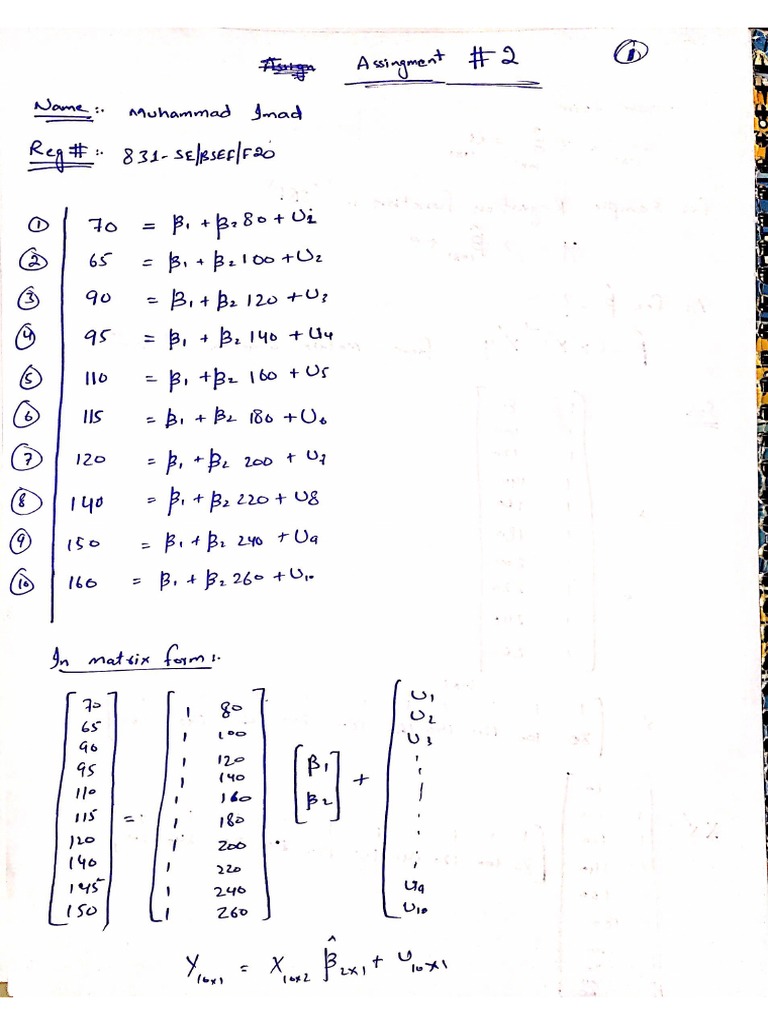 Assingment #2
1
Name:- Muhammad Imad
Reg#:- 831-SE/BSEF/F20
① 70 = β₁ + β₂ 80 + Ui
② 65 = β₁ + β₂ 100 + U₂
③ 90 = β₁ + β₂ 120 + U₃
④ 95 = β₁ + β₂ 140 + U4
⑤ 110 = β₁ + β₂ 160 + U5
⑥ 115 = β₁ + β₂ 180 + U₆
⑦ 120 = β₁ + β₂ 200 + U₇
⑧ 140 = β₁ + β₂ 220 + U8
⑨ 150 = β₁ + β₂ 240 + U9
⑩ 160 = β₁ + β₂ 260 + U₁₀
In matrix form:-
70 1 80 U₁
65 1 100 U₂
90 1 120 β₁ + U₃
95 1 140
110 1 160 β₂
115 = 1 180
120 1 200 .
140 1 220
145 1 240 U9
150 1 260 U₁₀
Y₁₀ₓ₁ = X₁₀ₓ₂ β̂₂ₓ₁ + U₁₀ₓ₁